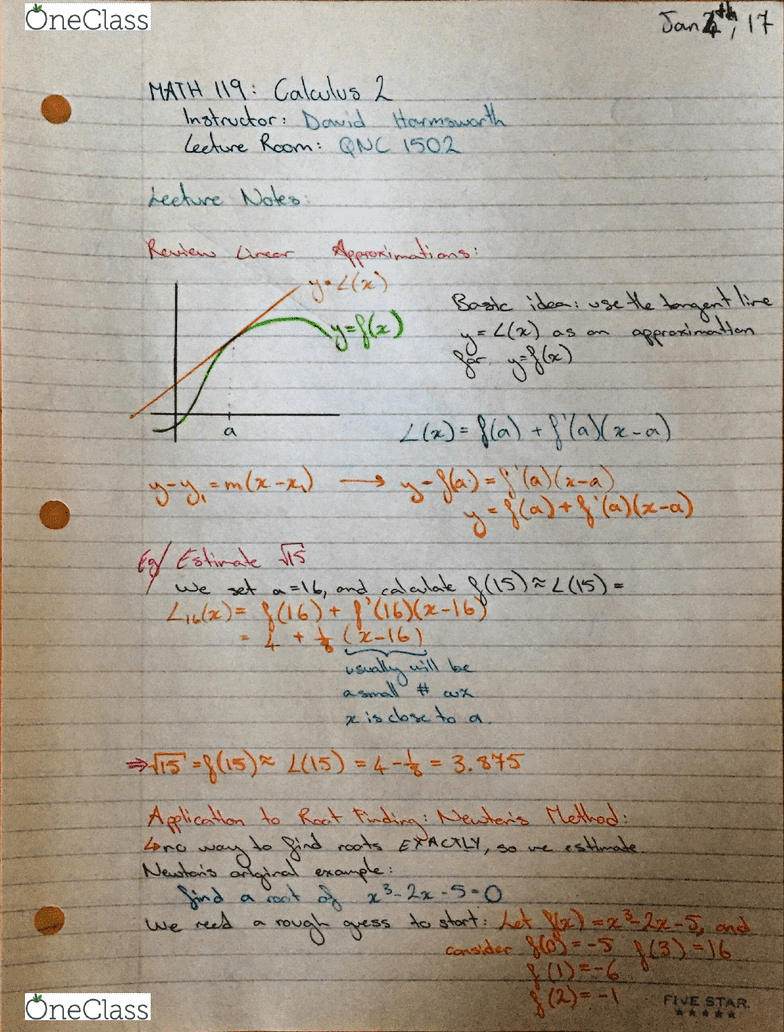 OneClass
Jan 4th, 17
MATH 119: Calculus 2
Instructor: David Harmsworth
Lecture Room: QNC 1502
Lecture Notes:
Review Linear Approximations:
y=L(x)
y=f(x)
a
Basic idea: use the tangent line
y=L(x) as an approximation
for y=f(x)
L(x)= f(a) + f'(a)(x-a)
y-y₁=m(x-x₁) → y-f(a)=f'(a)(x-a)
y=f(a)+f'(a)(x-a)
Eg/ Estimate √15
We set a=16, and calculate f(15)≈L(15)=
L₁₆(x)= f(16)+ f'(16)(x-16)
= 4 + 1/8 (x-16)
usually will be
a small #
x is close to a.
⇒√15 =f(15)≈ L(15) = 4-1/8 = 3.875
Application to Root Finding: Newton's Method:
↳no way to find roots EXACTLY, so we estimate.
Newton's original example:
find a root of x³-2x-5=0
We need a rough guess to start: Let f(x)=x³-2x-5, and
consider f(0)=-5 f(3)=16
f(1)=-6
f(2)=-1
FIVE STAR.
★★★★★
OneClass